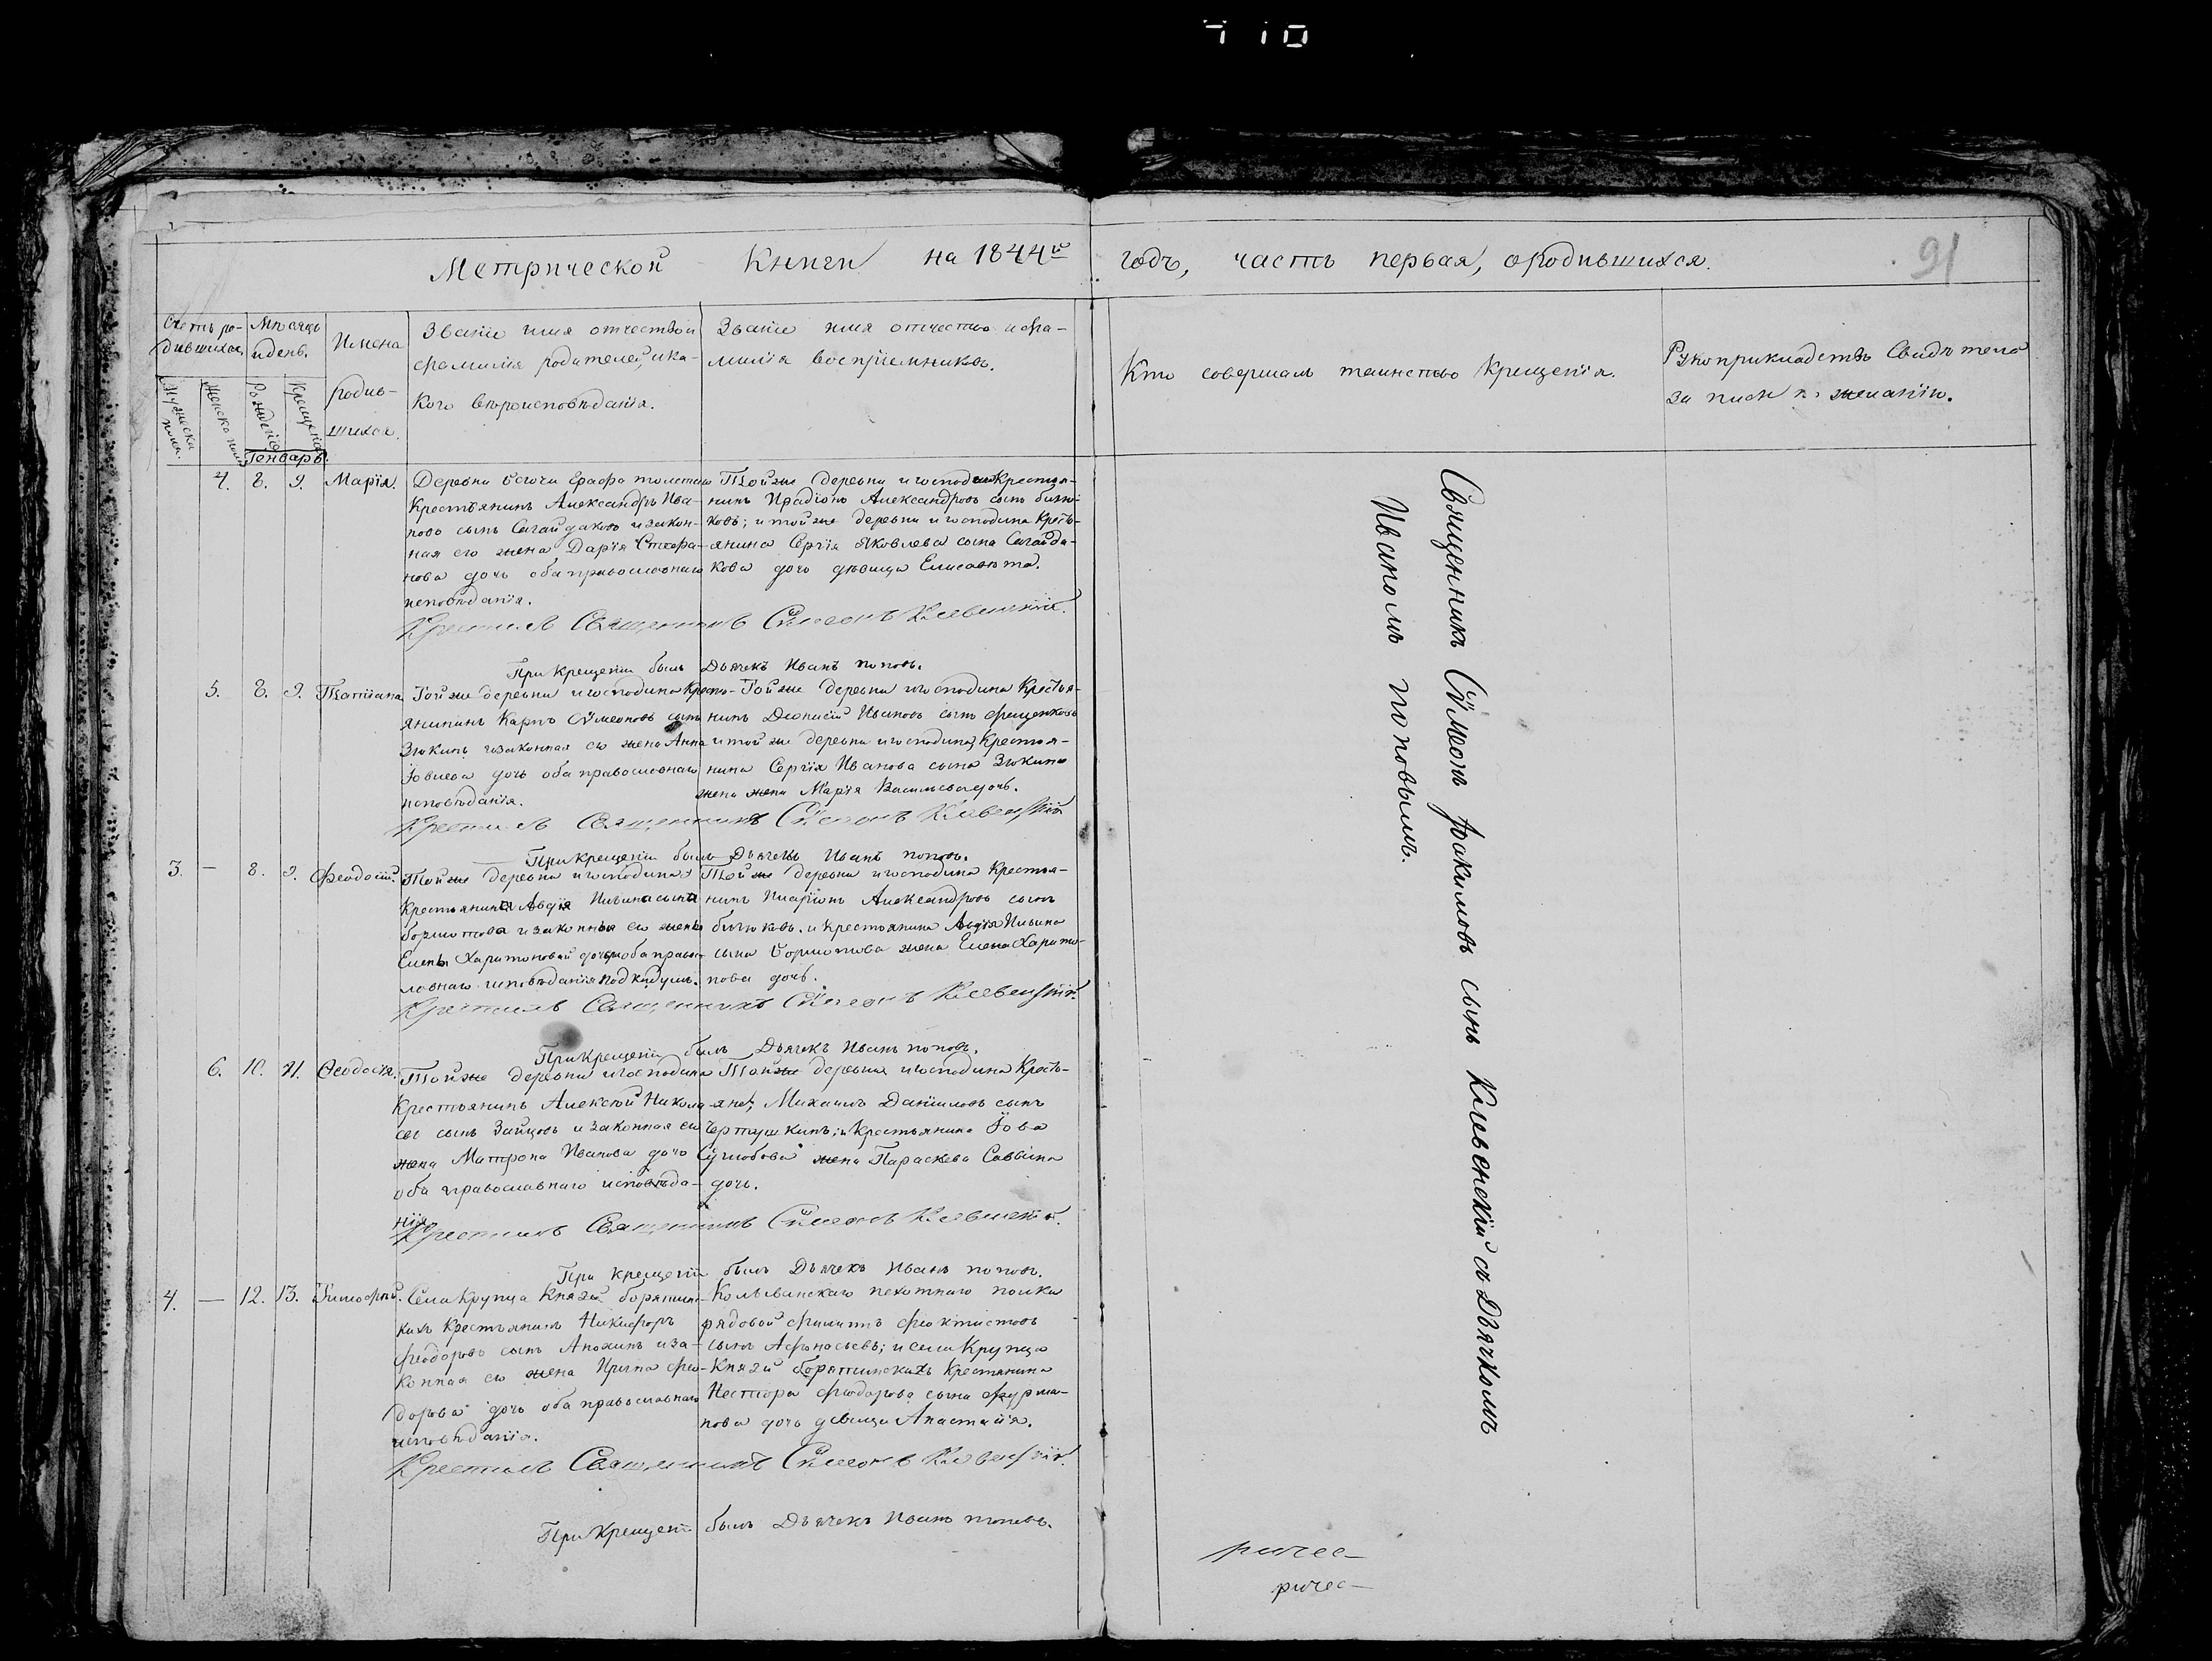 Метрической Книги на 1844й годъ, часть первая, ородившихся.
91
Счетъ ро-
дившихся,
Мужеска
пола.
Женска пола
Мѣсяцъ
идень.
Рожденія
Крещенія
Генварь.
Имена
родив-
шихся.
Званіе имя отчество и
фамилія родителей, ика-
кого вѣроисповѣданія.
Званіе имя отчество ифа-
милія воспріемниковъ.
Кто совершалъ таинство Крещенія.
Рукоприкладство Свидѣтелей
записи по желанію.
4. 8. 9. Марія.
Деревни Графа толстаго
Крестьянинъ Александръ Ива-
новъ сынъ Сагайдаковъ изакон-
ная его жена Дарія Стефа-
нова дочь оба православнаго
исповѣданія.
Тойже деревни игосподина Крестья-
нинъ Иродіонъ Александровъ сынъ бирю-
ковъ; итойже деревни игосподина Кресть-
янина Сергія Яковлева сына Сагайда-
кова дочь дѣвица Елисавета.
Крестилъ Священникъ Сѵмеонъ Клевенскій.
При Крещеніи былъ Дьячекъ Иванъ поповъ.
5. 8. 9. Татіана
Тойже деревни игосподина Кресть-
янининъ Карпъ Сѵмеоновъ сынъ
Зюкинъ изаконная его жена Анна
Іовлева дочь оба православнаго
исповѣданія.
Тойже деревни игосподина Крестья-
нинъ Діонисій Ивановъ сынъ фещенковъ
итойже деревни игосподина Крестья-
нина Сергія Иванова сына Зюкина
жена жена Марія Васильева дочь.
Крестилъ Священникъ Сѵмеонъ Клевенскій
При крещеніи былъ Дьячекъ Иванъ поповъ.
3. — 8. 9. Феодосій.
Тойже деревни игосподина
Крестьянина Авдія Ильина сына
бормотова изаконныя его жены
Елены Харитоновой дочери оба право-
славнаго исповѣданія подкидышъ.
Тойже деревни игосподина Крестья-
нинъ Иларіонъ Александровъ сынъ
бирюковъ. и Крестьянина Авдія Ильина
сына бормотова жена Елена Харито-
нова дочь.
Крестилъ Священникъ Сѵмеонъ Клевенскій.
При Крещеніи былъ Дьячекъ Иванъ поповъ.
6. 10. 11. Феодосія.
Тойже деревни игосподина
Крестьянинъ Алексѣй Никола-
евъ сынъ Зайцовъ и Законная его
жена Матрона Иванова дочь
оба православнаго исповѣда-
нія.
Тойже деревни игосподина Кресть-
янинъ, Михаилъ Даніиловъ сынъ
Чертушкинъ; и Крестьянина Іова
жена Параскева Саввина
дочь.
Крестилъ Священникъ Сѵмеонъ Клевенскій.
При крещеніи былъ Дьячекъ Иванъ поповъ.
4. — 12. 13. Тимофей.
Села Крупца Князей борятин-
кихъ Крестьянинъ Никифоръ
феодоровъ сынъ Анохинъ иза-
конная его жена Ирина фео-
дорова дочь оба православнаго
исповѣданія.
Колыванскаго пехотнаго полка
рядовой филипъ феоктистовъ
сынъ Афонасьевъ; и села Крупца
Князей борятинскихъ Крестьянина
Нестора феодорова сына фурма-
нова дочь дѣвица Анастасія.
Крестилъ Священникъ Сѵмеонъ Клевенскій.
При Крещеніи былъ Дьячекъ Иванъ поповъ.
Священникъ Сѵмеонъ Іоакимовъ сынъ Клевенскій съ Дьячкомъ
Иваномъ поповымъ.
ричес-
ричес-